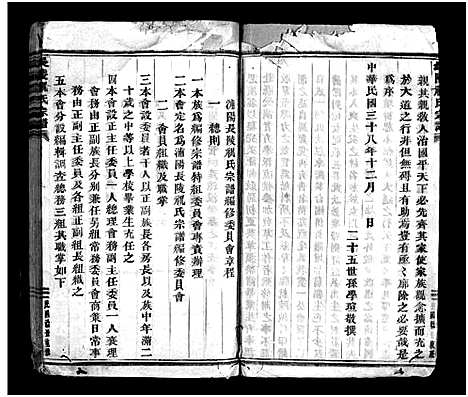 親其親敎人治國平天下必先齊其家使家族觀念擴而充之
於大道之行非但無碍且有助焉豈有廢除之必要哉是
爲序
中華民國三十八年十二月 日
二十五世孫學瑄敬撰
漣陽長陵祝氏宗譜編修委員會章程
一 總則
一本族爲編修宗譜特組委員會專責辦理
二本會定名爲漣陽長陵祝氏宗譜編修委員會
二 會員組織及職掌
三本會設委員若干人以正副族長各房長以及族中年滿二
十歲之中等以上學校畢業生充任之
四本會設正主任委員一人總理會務副主任委員一人襄理
會務由正副族長分別兼任另組常務委員會商策日常事
務由正副主任委員及各組正副組長組織之
五本會分設編輯調查總務三組其職掌如下